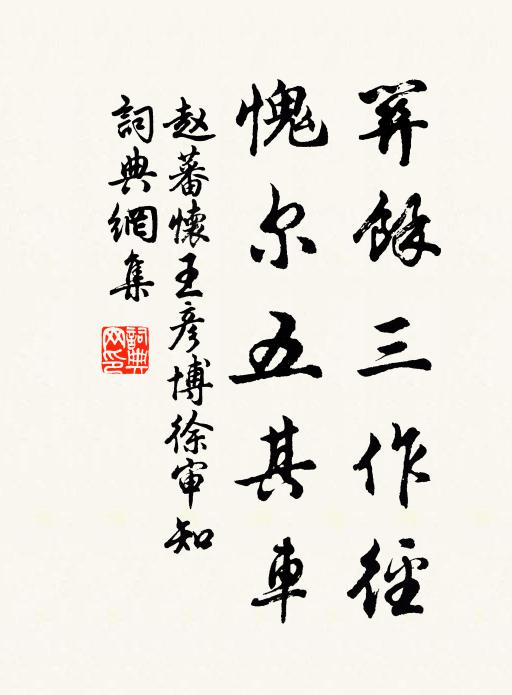 開餘三作徑
愧尔五其車
赵蕃懷王彦博徐审知
詞典網集
詞典网印